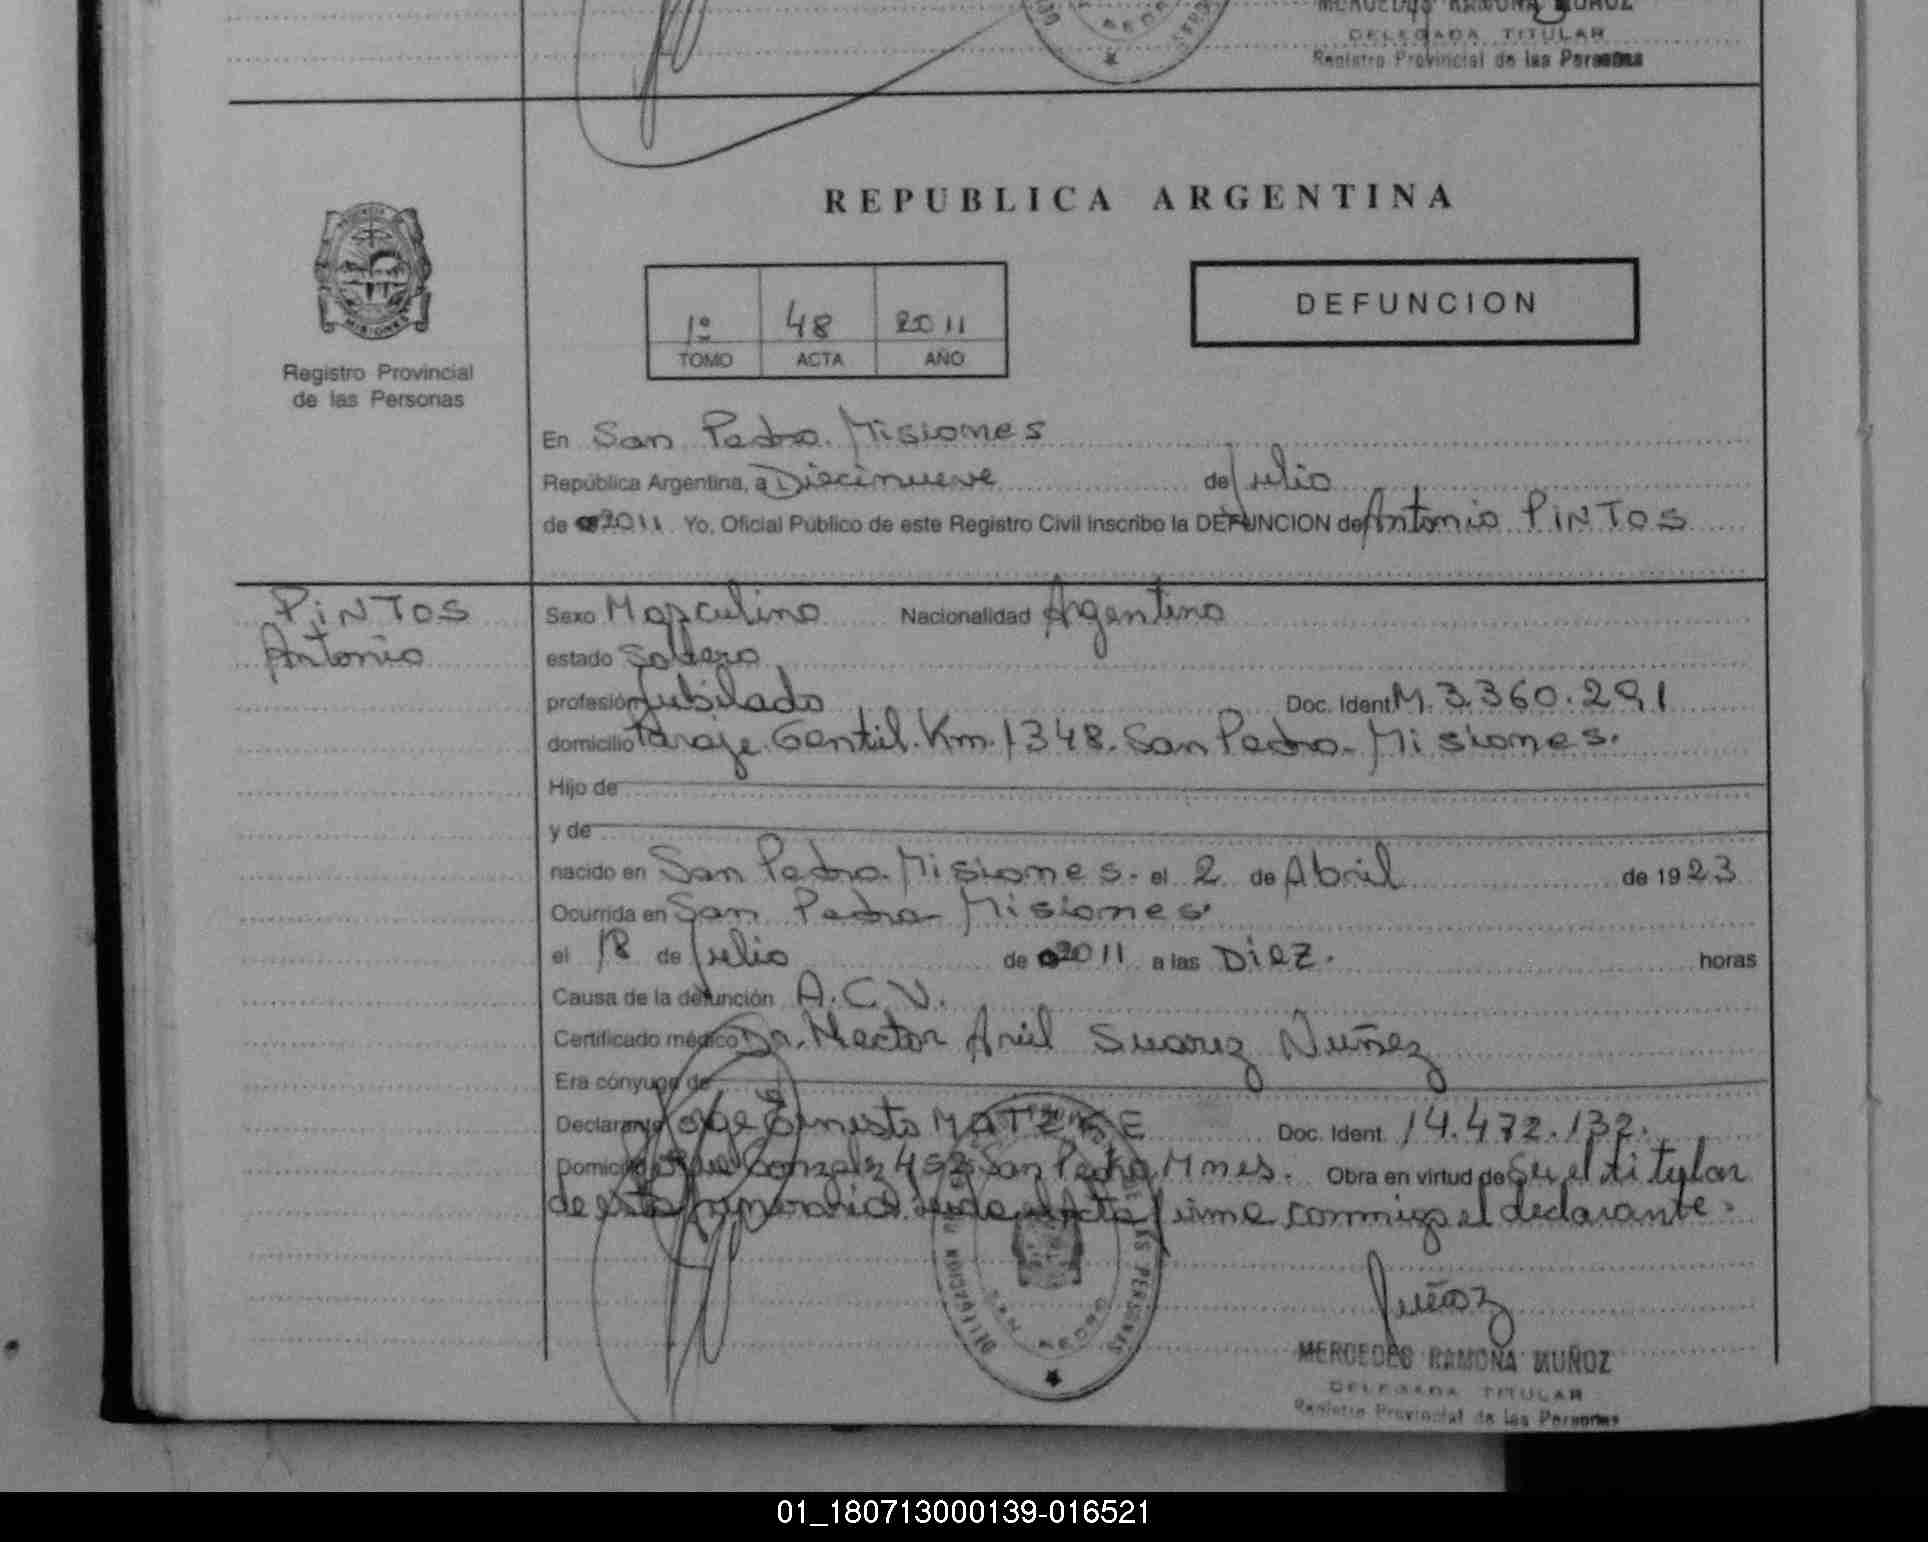 MERCEDES RAMONA MUÑOZ
DELEGADA TITULAR
Registro Provincial de las Personas
REPUBLICA ARGENTINA
MISIONES
Registro Provincial
de las Personas
1º 48 2011
TOMO ACTA AÑO
DEFUNCION
En San Pedro. Misiones
República Argentina, a Diecinueve de Julio
de 2011 Yo, Oficial Público de este Registro Civil inscribo la DEFUNCION de Antonio PiNTOS
PiNTOS
Antonio
Sexo Masculino Nacionalidad Argentino
estado Soltero
profesión Jubilado Doc. Ident M. 3.360.291
domicilio Paraje Gentil. Km. 1348. San Pedro. Misiones.
Hijo de
y de
nacido en San Pedro. Misiones. el 2 de Abril de 1923
Ocurrida en San Pedro Misiones.
el 18 de Julio de 2011 a las Diez. horas
Causa de la defunción A.C.V.
Certificado médico Dr. Hector Ariel Suarez Nuñez
Era cónyuge de
Declarante Jorge Ernesto MATZKE Doc. Ident. 14.472.132.
Domicilio Gonzalez 452 San Pedro Mnes. Obra en virtud de Ser el titular
de esta Leida el Acta firma conmigo el declarante.
DELEGACION
DE LAS PERSONAS
SAN PEDRO
Muñoz
MERCEDES RAMONA MUÑOZ
DELEGADA TITULAR
Registro Provincial de las Personas
01_180713000139-016521